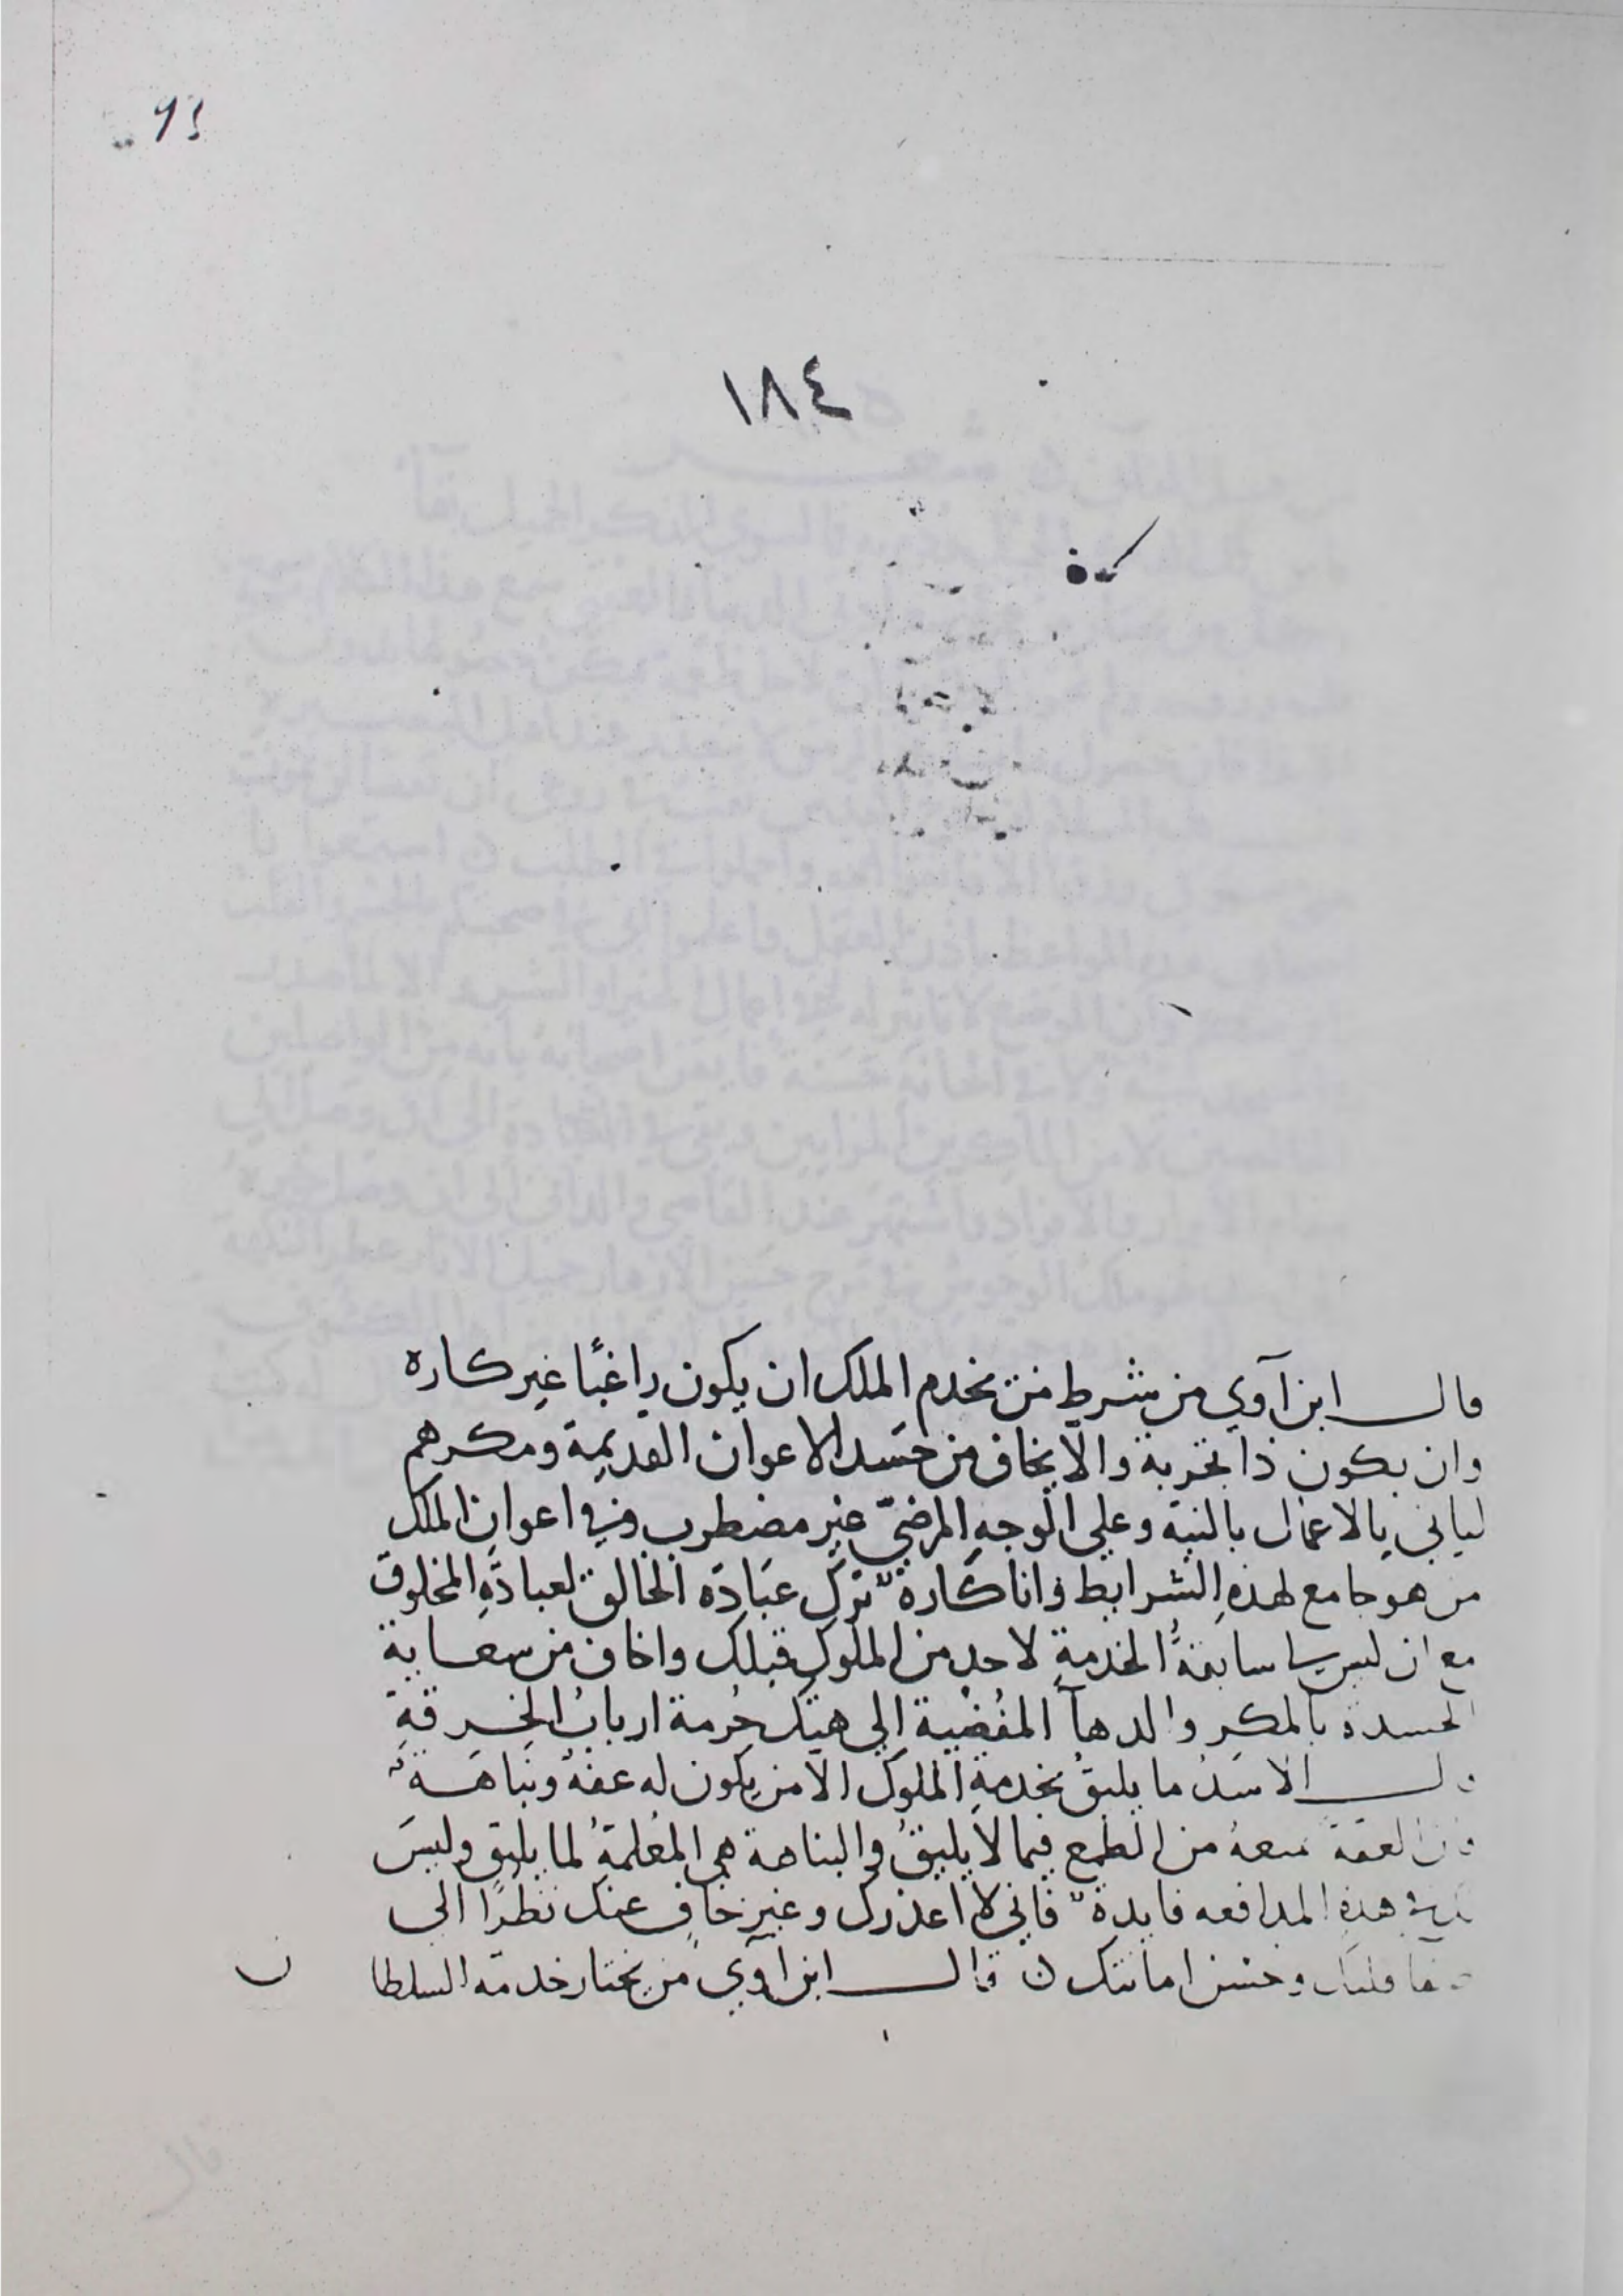 93
١٨٤
قال ابن آوي من شرط من يخدم الملك ان يكون راغبًا غير كاره
وان يكون ذا تجربة والّا يخاف من حسد الاعوان القديمة ومكرهم
لياتي بالاعمال بالنية وعلي الوجه المرضيّ غير مضطرب وفي اعوان الملك
من هو جامع لهذه الشرايط وانا كاره ترك عبادة الخالق لعبادة المخلوق
مع ان ليس لي سابقةُ الخدمة لاحد من الملوك قبلك واخاف من سعاية
الحسدة بالمكر والدهآ المفُضْية الي هتك حُرمة ارباب الخِرقةِ
الاسَدُ ما يليقُ بخدمةِ الملوك الّا من يكون له عفةُ ونباهَةُ
العفة من الطمع فيما لا يليقُ والنباهة هي المُعلمةُ لما يليق وليسَ
هذه المدافعه فايدة فاني لا اعذرك وغير خافٍ عنك نظرًا الي
وحسن امانتك ن قال ابن آوي من يختار خدمة السلطان
قال